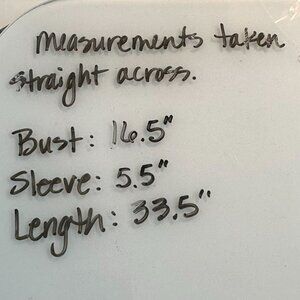 measurements taken
straight across.
Bust: 16.5"
Sleeve: 5.5"
Length: 33.5"